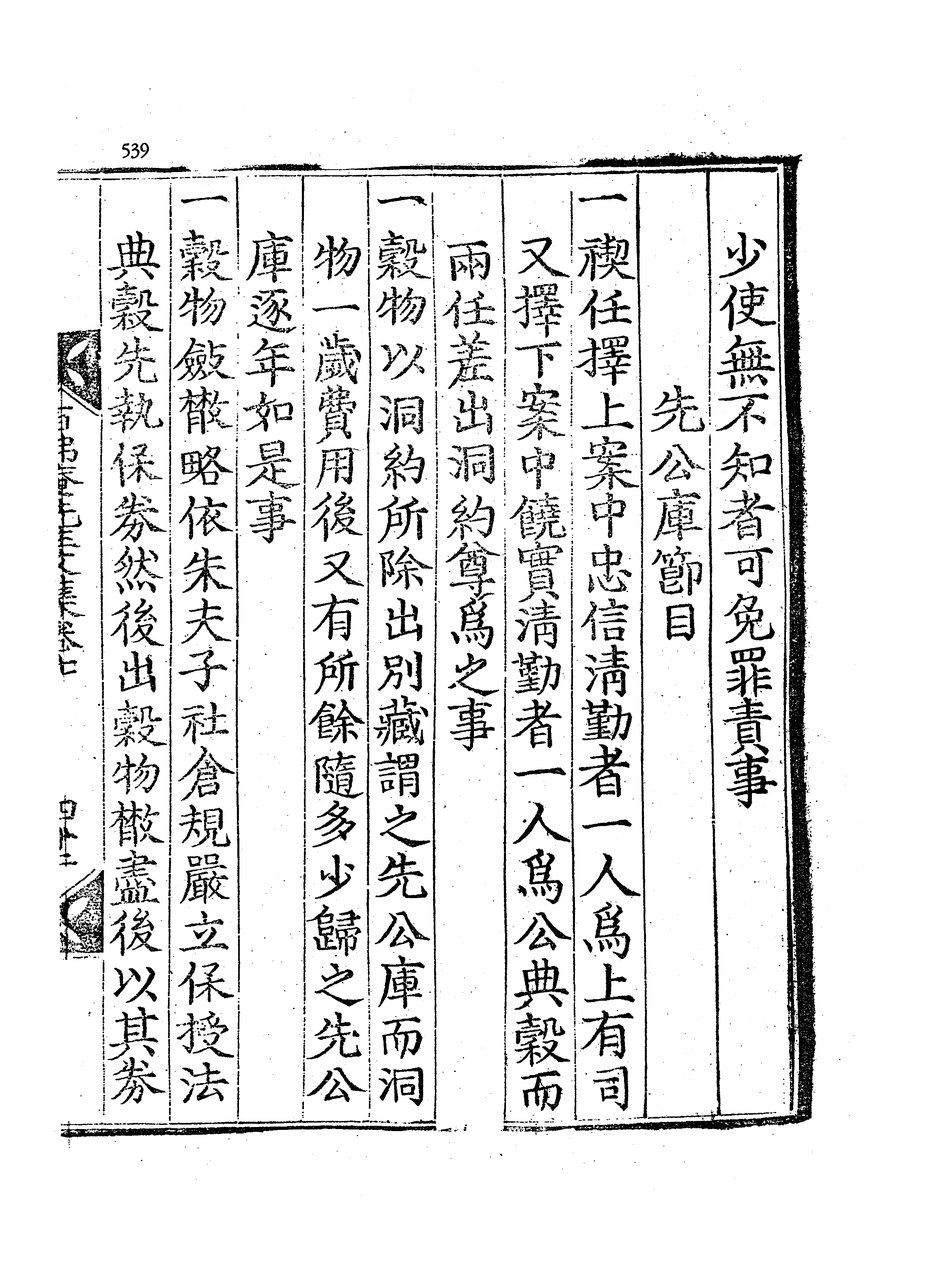 539
少使無不知者可免罪責事
先公庫節目
一禊任擇上案中忠信淸勤者一人爲上有司
又擇下案中饒實淸勤者一人爲公典穀而
兩任差出洞約尊爲之事
一穀物以洞約所除出別藏謂之先公庫而洞
物一歲費用後又有所餘隨多少歸之先公
庫逐年如是事
一穀物斂散略依朱夫子社倉規嚴立保授法
典穀先執保券然後出穀物散盡後以其券
先生文集卷七
四十二